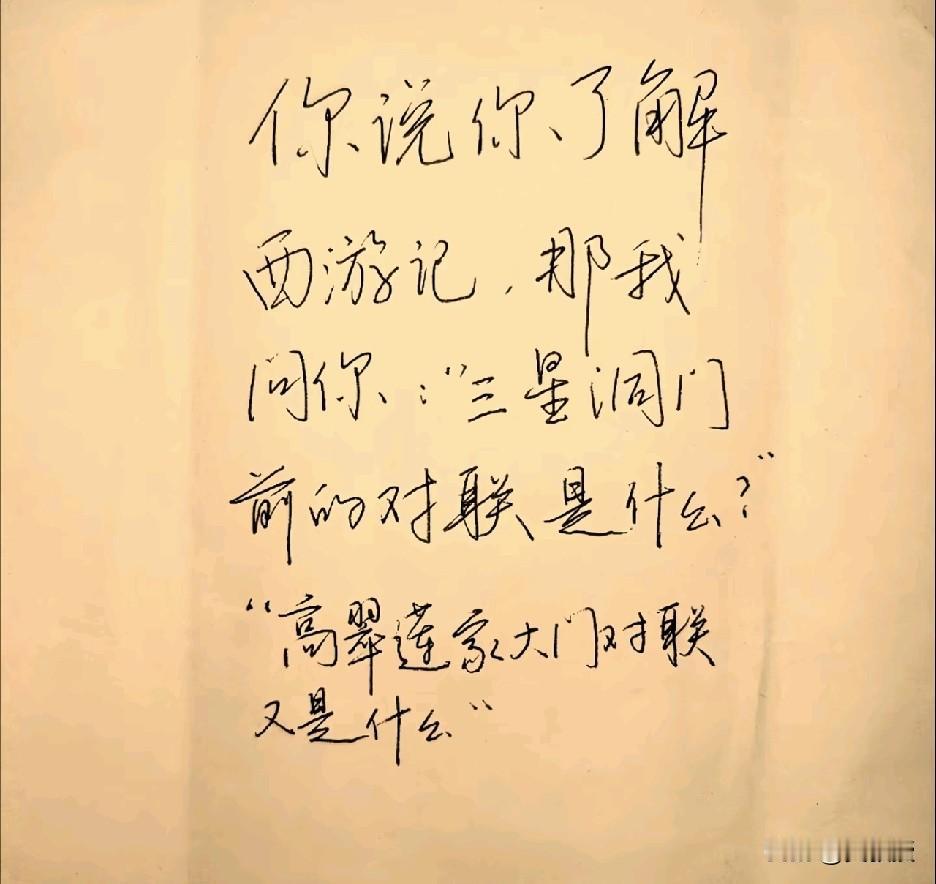 你说你了解
西游记，那我
问你：“三星洞门
前的对联是什么？”
“高翠莲家大门对联
又是什么”